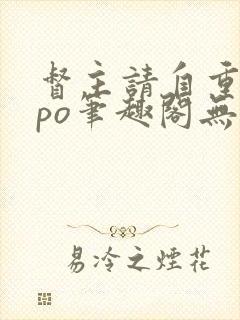 督主請自重
po筆趣閣無
易冷之煙花